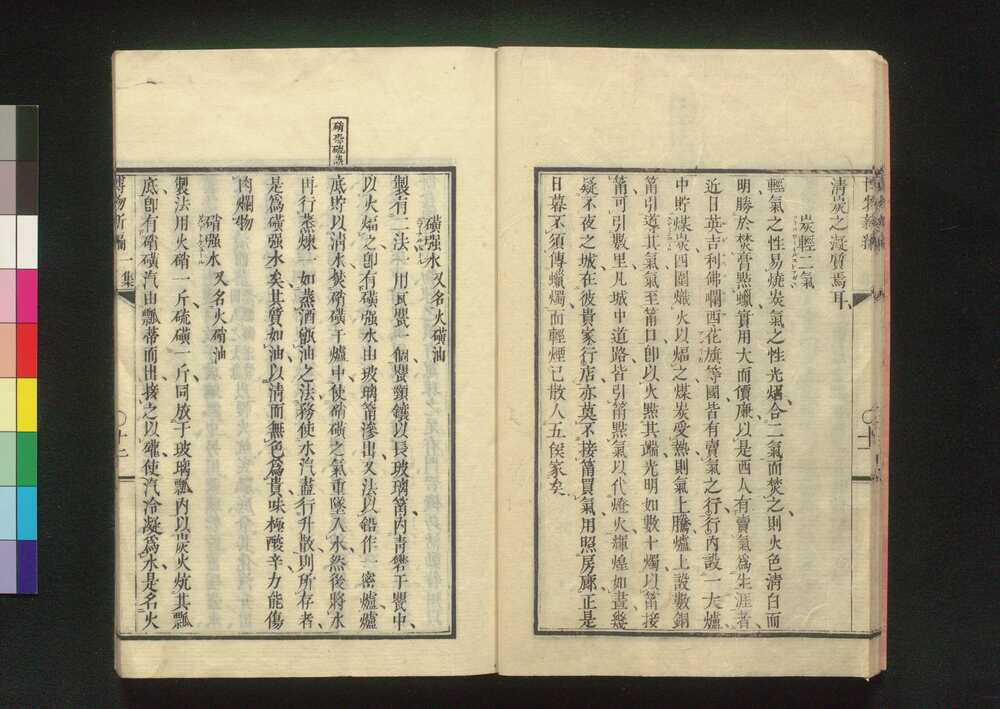 清炭之凝質焉耳
炭輕二氣
輕氣之性易燒炭氣之性光熖合二氣而焚之則火色清白而
明勝於焚膏㸃蠟實用大而價廉以是西人有賣氣爲生涯者
近日英吉利佛囒西花旗等國皆有賣氣之行行內設一大爐
中貯煤炭四圍熾火以煏之煤炭受熱則氣上騰爐上設數銅
筩引導其氣氣至筩口卽以火㸃其端光明如數十燭以筩接
筩可引數里凡城中道路皆引筩㸃氣以代燈火輝煌如晝幾
疑不夜之城在彼貴家行店亦莫不接筩買氣用照房廊正是
日暮不須傳蠟燭而輕煙已散入五侯家矣
磺强水 又名火磺油
製有二法一用瓦甖一個甖頸鑲以長玻璃筩內靑礬于甖中
以火煏之卽有磺强水由玻璃筩滲出又法以鉛作一密爐爐
底貯以清水焚硝磺于爐中使硝磺之氣重墜入水然後將水
再行蒸煉一如蒸酒甑油之法務使水汽盡行升散則所存者
是爲磺强水矣其質如油以清而無色爲貴味極酸辛力能傷
肉爛物
硝强水 又名火硝油
製法用火硝一斤硫磺一斤同放于玻璃瓢內以炭火炕其瓢
底卽有硝磺汽由瓢蒂而出接之以礶使汽冷凝爲水是名火
博物新編 一集 〇十二